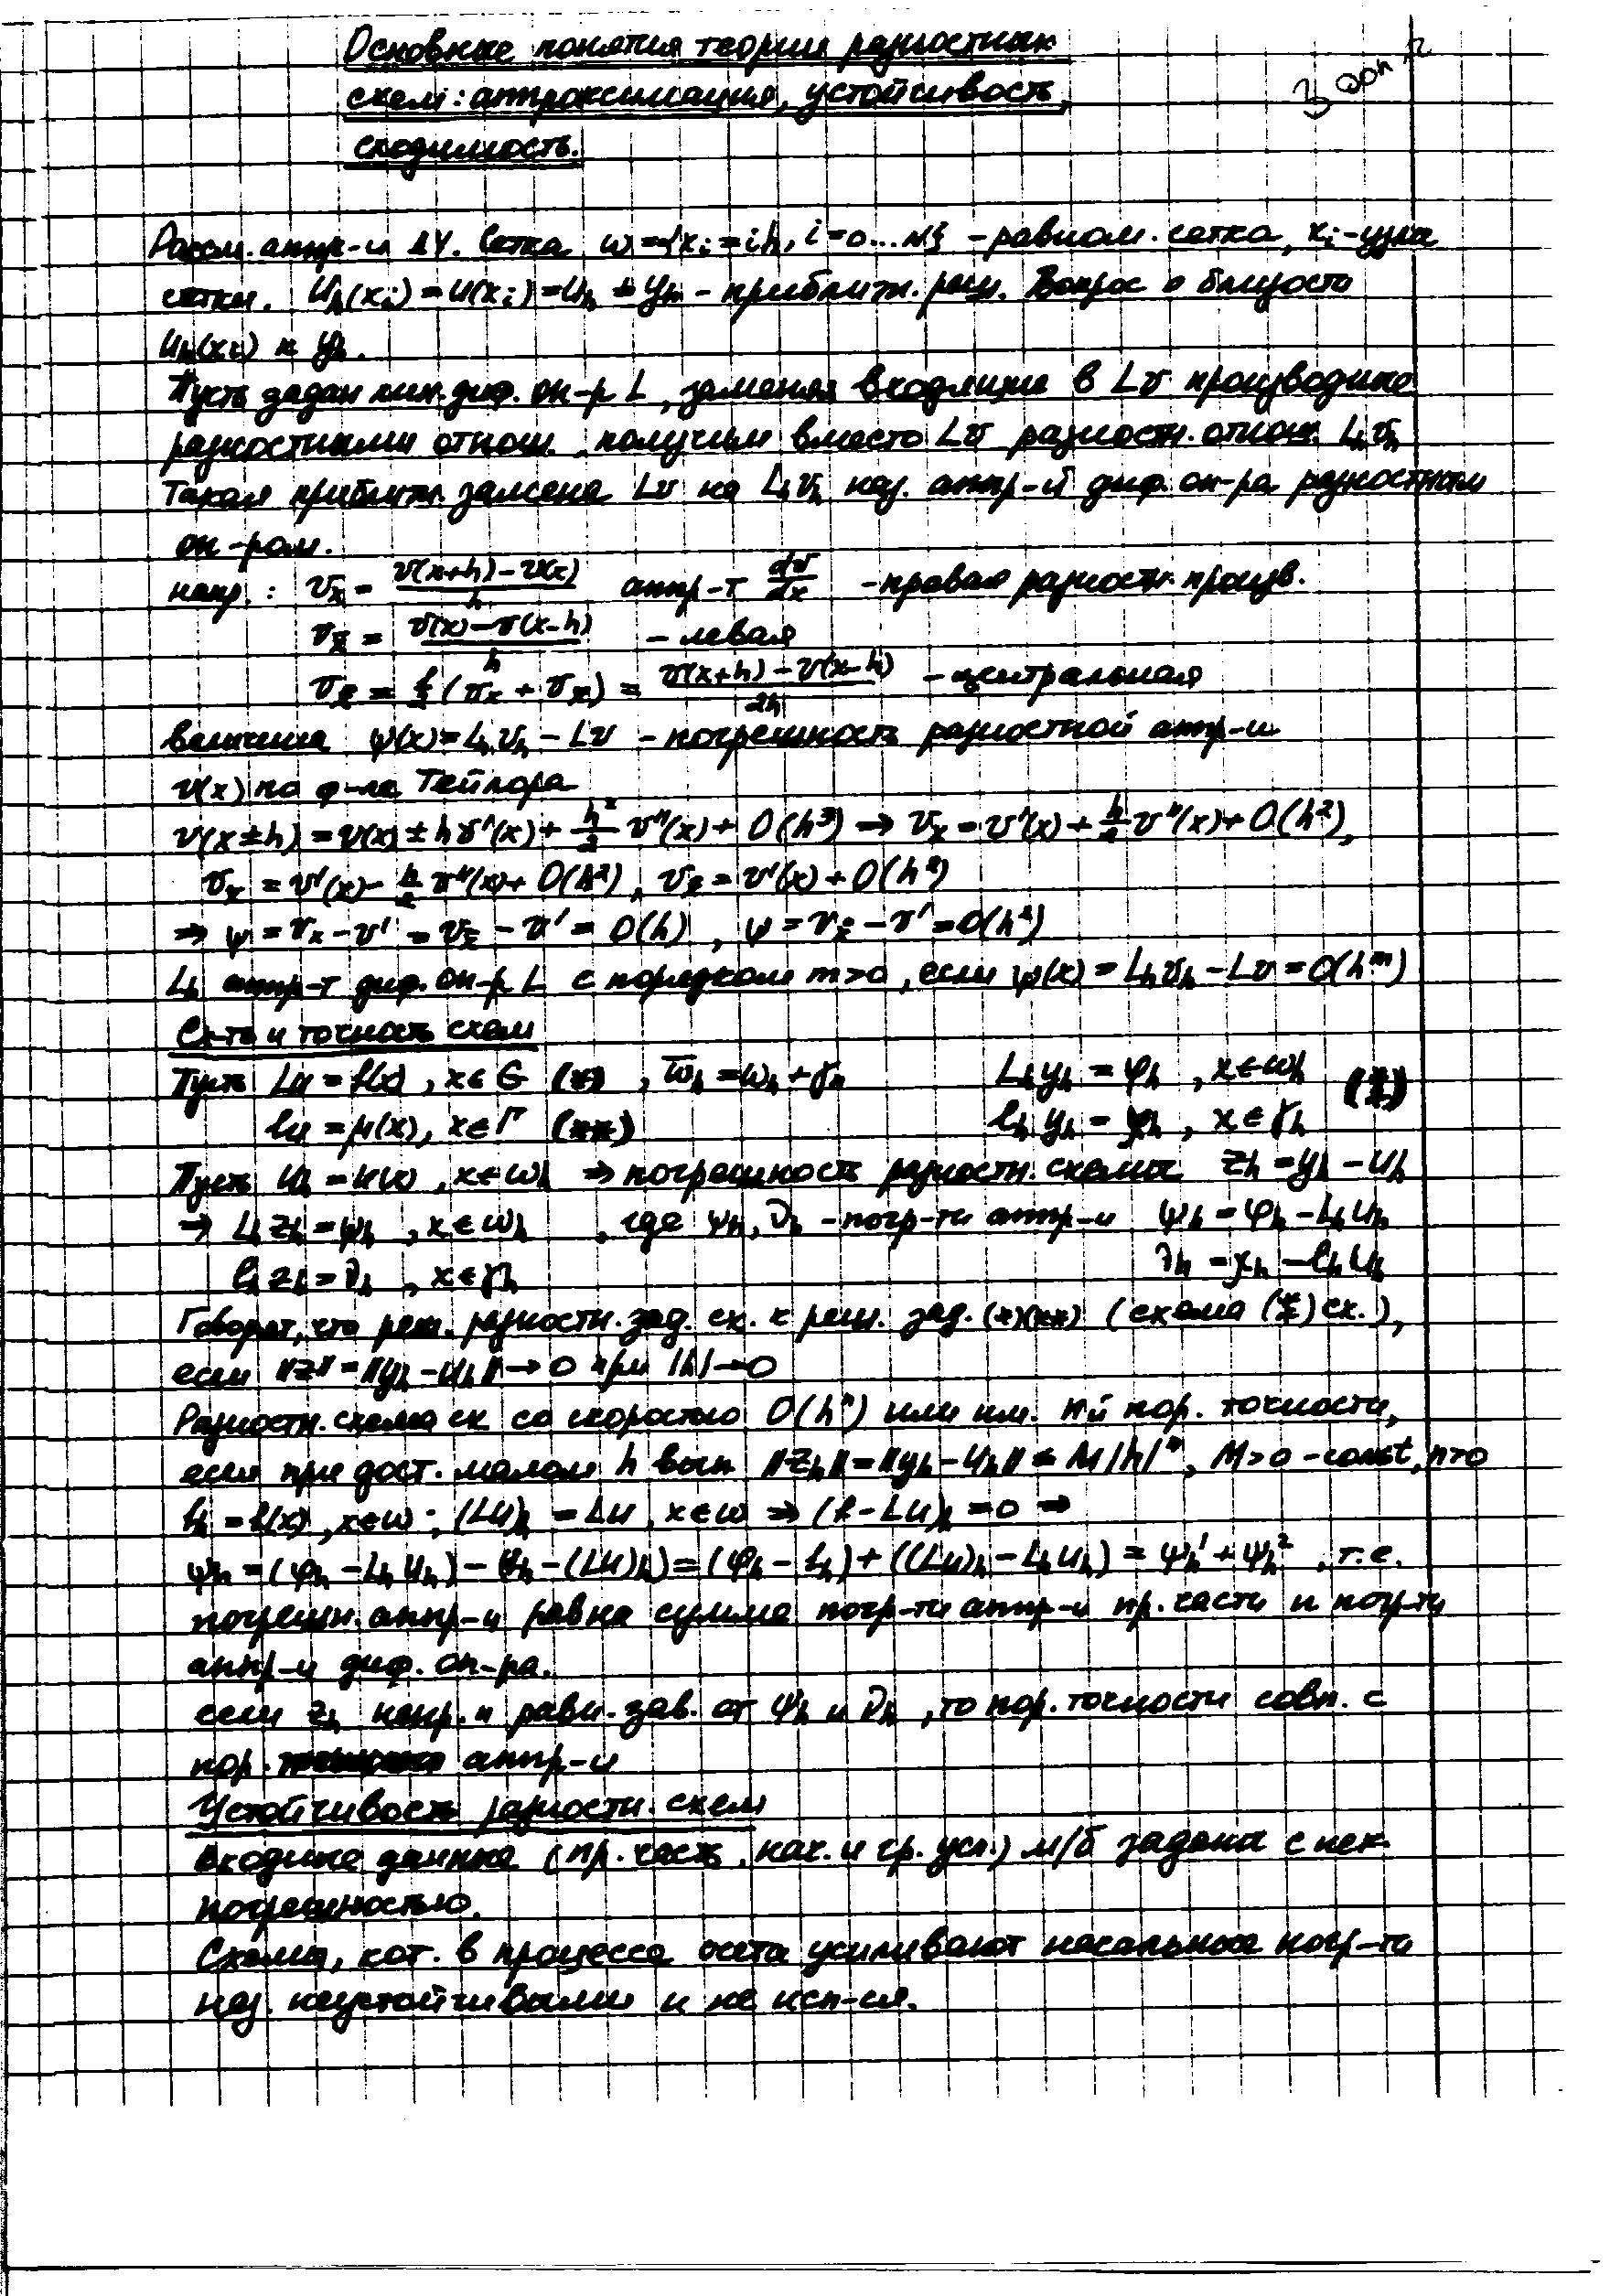 Основные понятия теории разностных
схем: аппроксимация, устойчивость,
сходимость.
3 доп
Рассм. аппр-и ДУ. Сетка ω={x_i=ih, i=0...N} - равном. сетка, x_i - узлы
сетки. U_h(x_i)=u(x_i)=U_h ≠ y_h - приближ. реш. Вопрос о близости
U_h(x_i) к y_h.
Пусть задан лин. диф. оп-р L, заменяя входящие в Lv производные
разностными отнош., получим вместо Lv разностн. отнош. L_h v_h
Такая приближ. замена Lv на L_h v_h наз. аппр-й диф. оп-ра разностным
оп-ром.
напр.: v_x = (v(x+h)-v(x))/h аппр-т dv/dx - правая разностн. произв.
v_x̄ = (v(x)-v(x-h))/h - левая
v_x̊ = 1/2 (v_x + v_x̄) = (v(x+h)-v(x-h))/2h - центральная
величина ψ(x)=L_h v_h - Lv - погрешность разностной аппр-и
v(x) по ф-ле Тейлора
v(x±h)=v(x)±hv'(x)+h²/2 v''(x)+O(h³) ⇒ v_x=v'(x)+h/2 v''(x)+O(h²),
v_x̄=v'(x)-h/2 v''(x)+O(h²), v_x̊=v'(x)+O(h²)
⇒ ψ=v_x-v'=v_x̄-v'=O(h), ψ=v_x̊-v'=O(h²)
L_h аппр-т диф. оп-р L с порядком m>0, если ψ(x)=L_h v_h-Lv=O(h^m)
Сх-ть и точность схем
Пусть Lu=f(x), x∈G (*), ω̄_h=ω_h+γ_h L_h y_h=φ_h, x∈ω_h (*/*)
lu=μ(x), x∈Г (**) l_h y_h=χ_h, x∈γ_h
Пусть U_h=u(x), x∈ω_h ⇒ погрешность разностн. схемы z_h=y_h-u_h
⇒ L_h z_h=ψ_h, x∈ω_h, где ψ_h, ν_h - погр-ти аппр-и ψ_h=φ_h-L_h u_h
l_h z_h=ν_h, x∈γ_h ν_h=χ_h-l_h u_h
Говорят, что реш. разностн. зад. сх. к реш. зад. (*)(**) (схема (*/*) сх.),
если ||z||=||y_h-u_h||→0 при |h|→0
Разностн. схема сх. со скоростью O(h^n) или им. n-й пор. точности,
если при дост. малом h вып ||z_h||=||y_h-u_h||≤M|h|^n, M>0-const, n>0
f_h=f(x), x∈ω; (Lu)_h=Lu, x∈ω ⇒ (f-Lu)_h=0 ⇒
ψ_h=(φ_h-L_h u_h)-(f_h-(Lu)_h)=(φ_h-f_h)+((Lu)_h-L_h u_h)=ψ_h¹+ψ_h², т.е.
погрешн. аппр-и равна сумме погр-ти аппр-и пр. части и погр-ти
аппр-и диф. оп-ра.
если z_h непр. и равн. зав. от ψ_h и ν_h, то пор. точности совп. с
пор. аппр-и
Устойчивость разностн. схем
Входные данные (пр. часть, нач. и гр. усл.) м/б заданы с нек.
погрешностью.
Схемы, кот. в процессе счета усиливают начальные погр-ти
наз. неустойчивыми и не исп-ся.